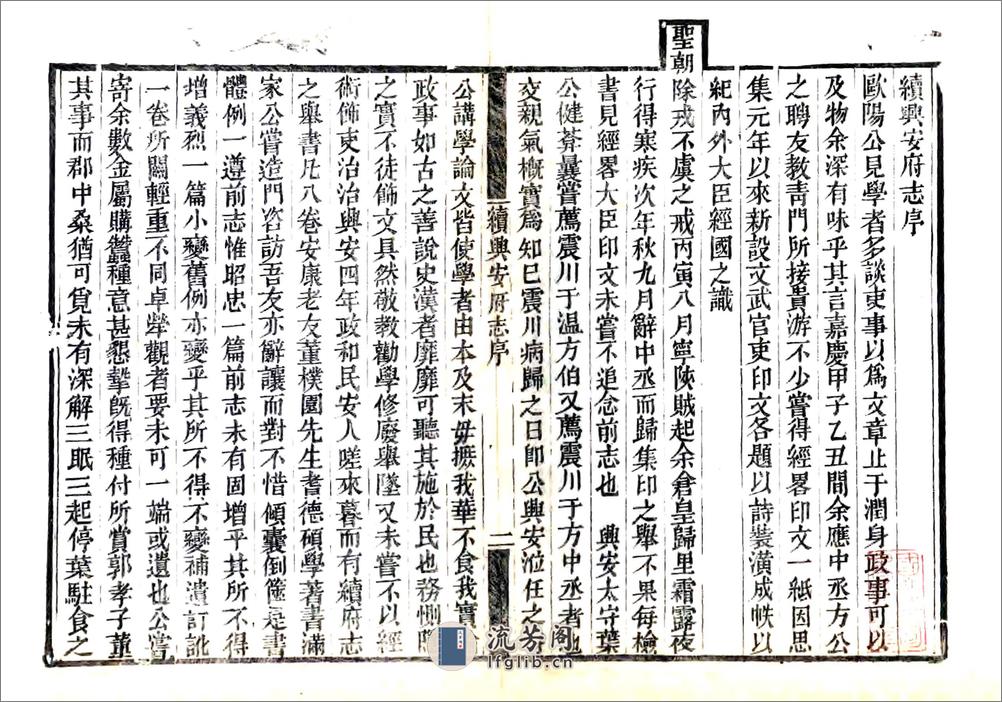 續興安府志序
歐陽公見學者多談吏事以爲文章止于潤身政事可以
及物余深有味乎其言嘉慶甲子乙丑間余應中丞方公
之聘友教青門所接貴游不少嘗得經畧印文一紙因思
集元年以來新設文武官吏印文各題以詩裝潢成帙以
紀內外大臣經國之識
聖朝除戎不虞之戒丙寅八月寧陝賊起余倉皇歸里霜露夜
行得寒疾次年秋九月辭中丞而歸集印之舉不果每檢
書見經畧大臣印文未嘗不追念前志也 興安太守葉
公健菴曩嘗薦震川于温方伯又薦震川于方中丞者也
交親氣槪實爲知巳震川病歸之日即公興安涖任之
續興安府志序
二
公講學論文皆使學者由本及末毋撅我華不食我實
政事如古之善說史漢者靡靡可聽其施於民也務惻
之實不徒飾文具然敬教勸學修廢舉墜又未嘗不以經
術飾吏治治興安四年政和民安人嗟來暮而有續府志
之舉書凡八卷安康老友董樸園先生耆德碩學著書滿
家公嘗造門咨訪吾友亦辭讓而對不惜傾囊倒篋是書
體例一遵前志惟昭忠一篇前志未有固增乎其所不得
增義烈一篇小變舊例亦變乎其所不得不變補遺訂訛
一卷所關輕重不同卓犖觀者要未可一端或遺也公嘗
寄余數金屬購蠶種意甚懇摯旣得種付所賞郭孝子董
其事而郡中桑猶可覓未有深解三眠三起停葉駐食之
流芳阁
lfglib.cn